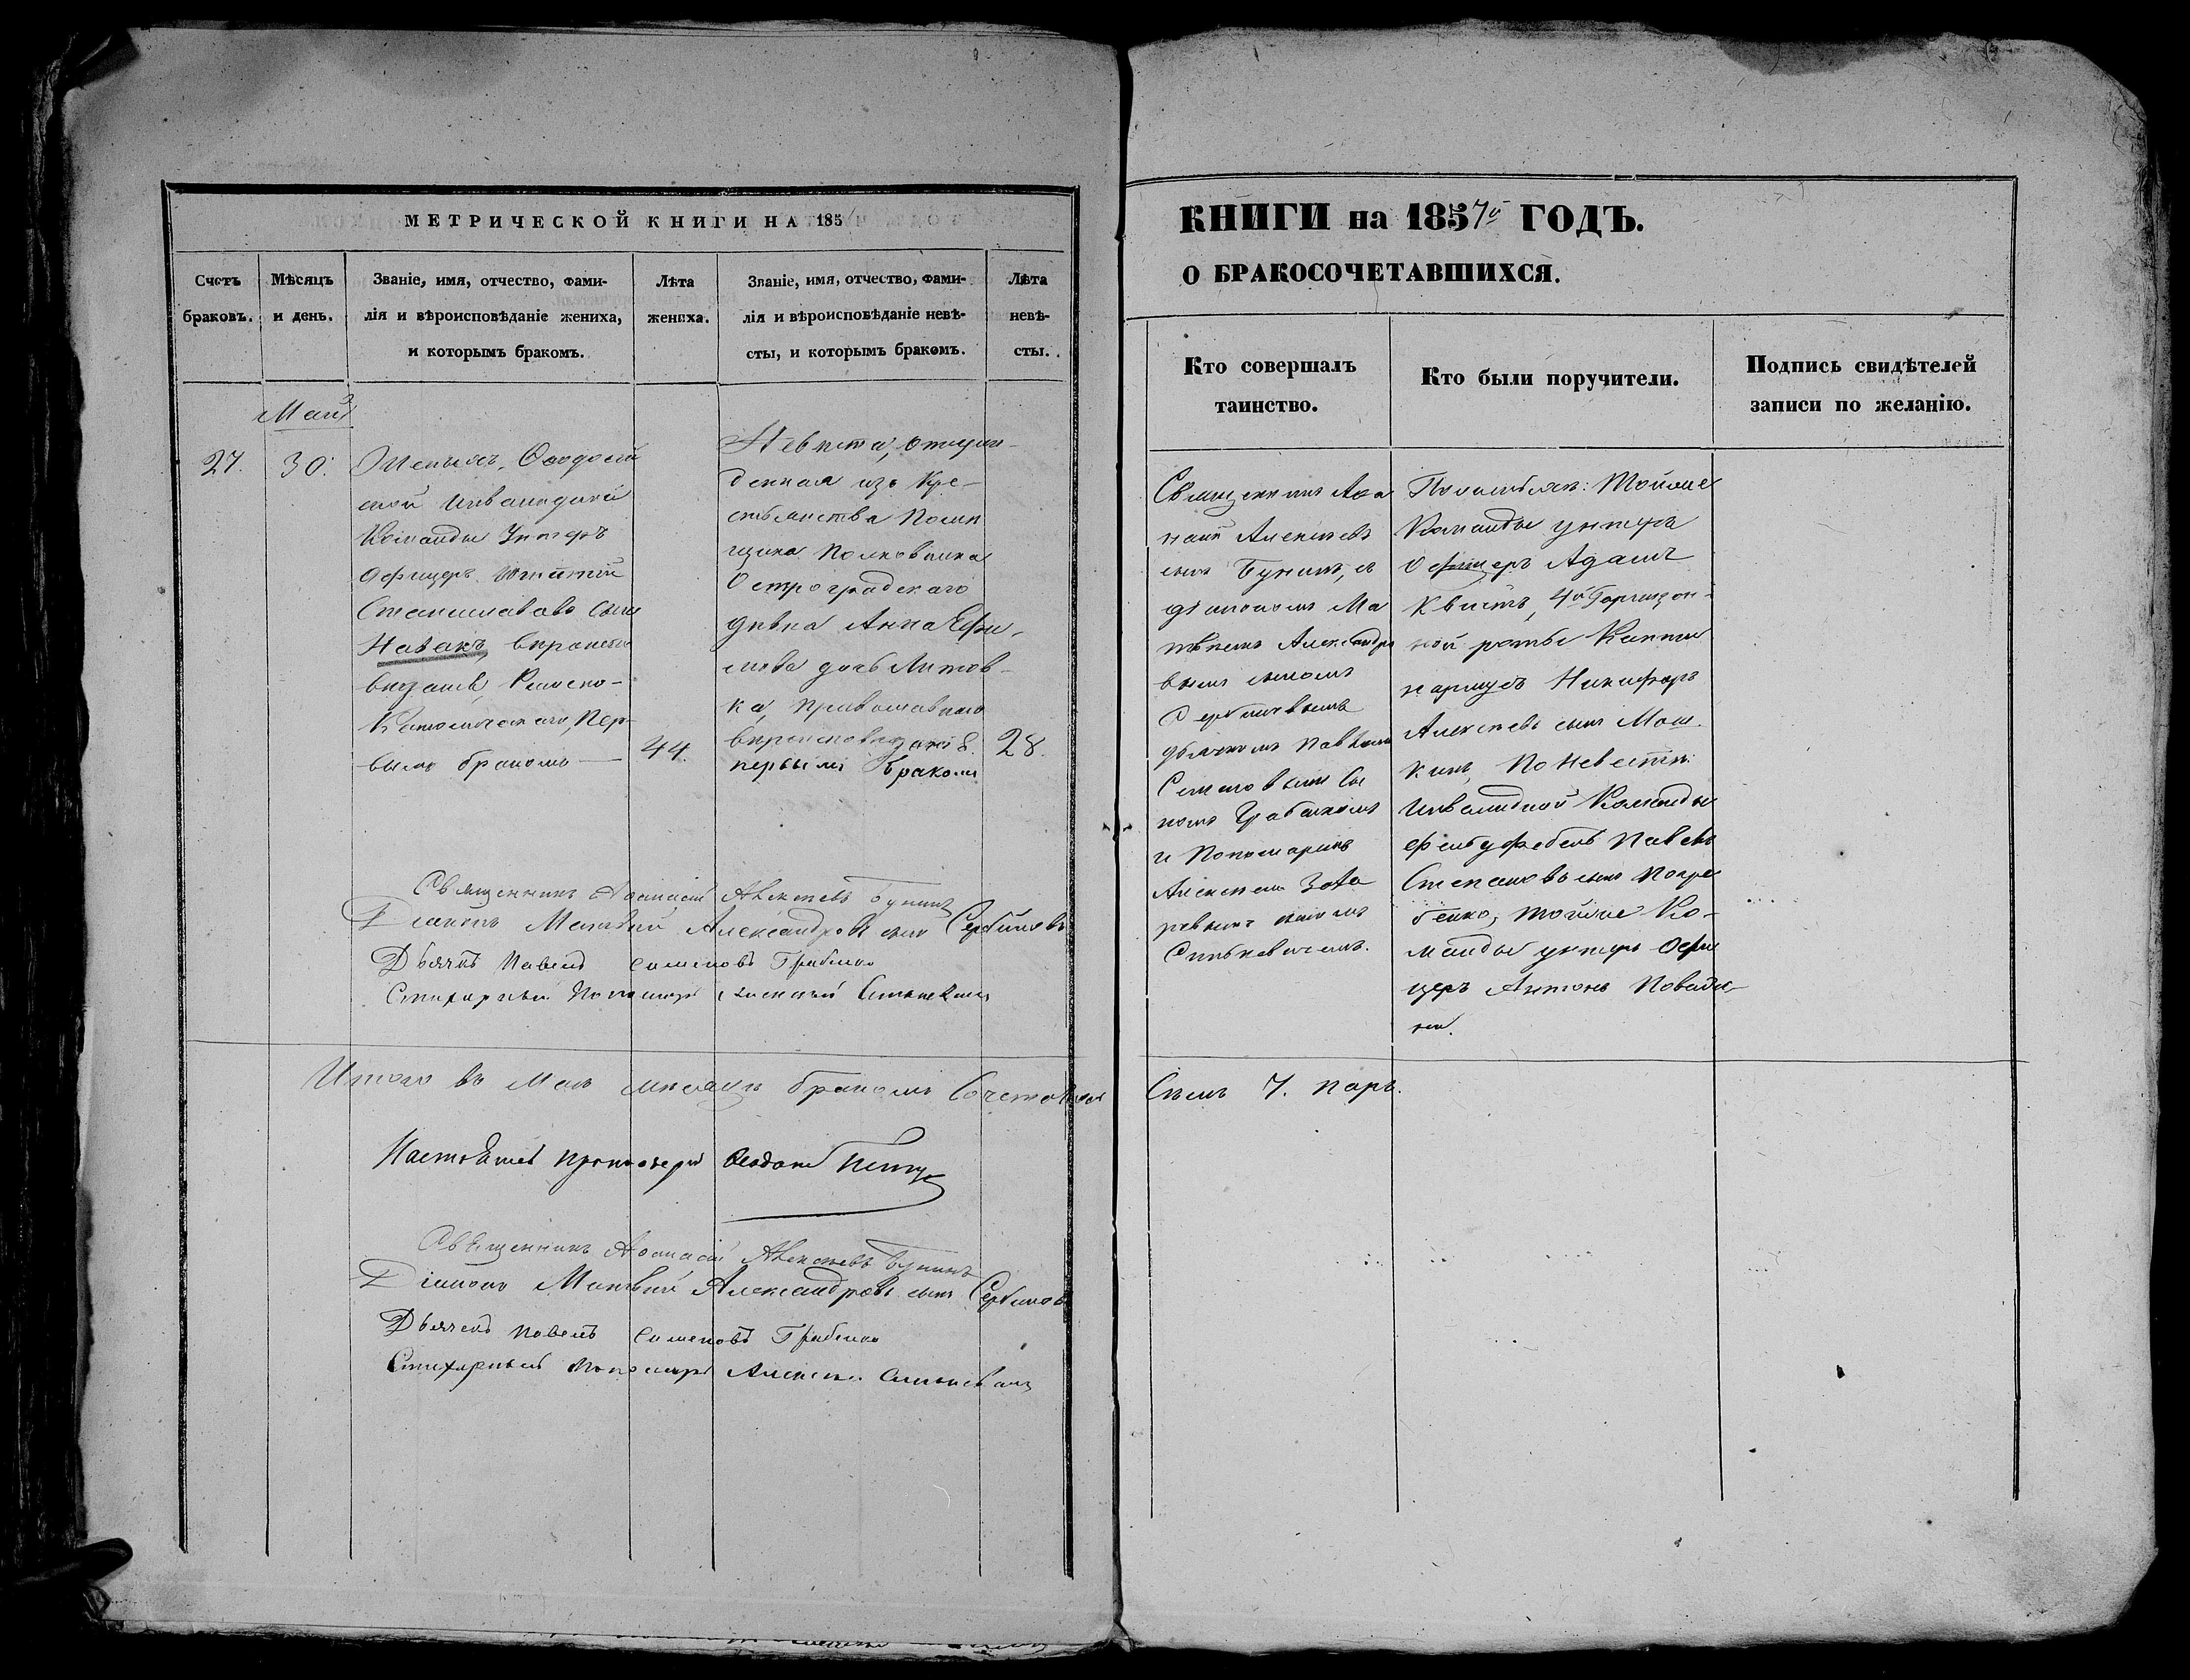 МЕТРИЧЕСКОЙ КНИГИ НА 185
Счетъ браковъ.
Мѣсяцъ и день.
Званіе, имя, отчество, фами-
лія и вѣроисповѣданіе жениха,
и которымъ бракомъ.
Лѣта жениха.
Званіе, имя, отчество, фами-
лія и вѣроисповѣданіе невѣ-
сты, и которымъ бракомъ.
Лѣта невѣ-
сты.
Май
27.
30.
Женихъ, Ѳеодосій
ской инвалидной
Команды Унтеръ
Офицеръ
Станиславовъ сынъ
Навакъ, вѣроиспо
вѣданія, Римско-
Католическаго, Пер-
вымъ бракомъ
44.
Невѣста, отпущен-
денная изъ Кре-
стьянства Помѣ
щика Полковника
Остроградскаго
дѣвка Анна Ефи-
мова дочь Литов-
ка, православнаго
вѣроисповѣданія.
первымъ бракомъ
28.
Священникъ Аѳанасій Алексѣевъ Бунинъ
Діаконъ Матвѣй Александровъ сынъ Сербиновъ
Дьячекъ Павелъ Симеоновъ Грабенко
Стихарный Пономарь Алексѣй
Итого въ Маѣ мѣсяцѣ бракомъ Сочеталось
Настоятель Протоіерей Ѳеодоръ
Священникъ Аѳанасій Алексѣевъ Бунинъ
Діаконъ Матвѣй Александровъ сынъ Сербиновъ
Дьячекъ Павелъ Симеоновъ Грабенко
Стихарный Пономарь Алексѣй
КНИГИ на 1857й ГОДЪ.
О БРАКОСОЧЕТАВШИХСЯ.
Кто совершалъ
таинство.
Кто были поручители.
Подпись свидѣтелей
записи по желанію.
Священникъ Аѳа
насій Алексѣевъ
сынъ Бунинъ, съ
діакономъ Ма
твѣемъ Александро
вымъ сыномъ
Сербиновымъ
дьячкомъ Павломъ
Симеоновымъ Сы
номъ Грабенкомъ
и Пономаремъ
Алексѣемъ Заха
ревымъ сыномъ
По женихѣ: Тойже
Команды унтеръ
Офицеръ Адамъ
Квистъ, 4й Гарнизон-
ной роты Каптен
нармусъ Никифоръ
Алексѣевъ сынъ Мош
кинъ, По Невѣстѣ:
Инвалидной Команды
фельдфебель Павелъ
Степановъ сынъ Погре
бенко, тойже Ко-
манды унтеръ Офи
церъ Антонъ
Семь 7. паръ.